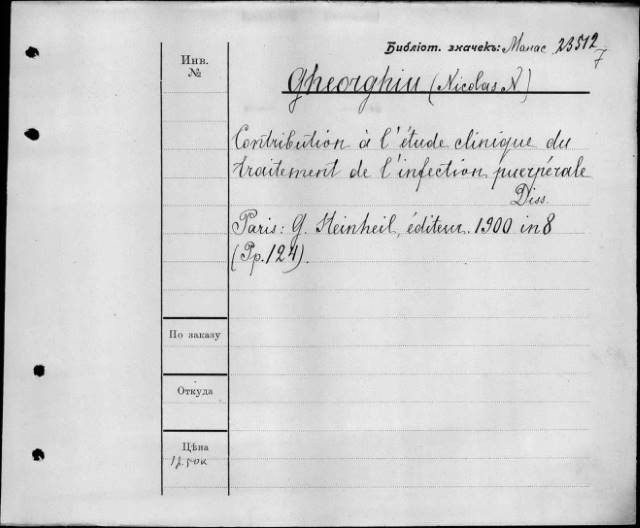 Библіот. значекъ: 23512
7
Инв.
№
Gheorghiu (Nicolas N)
Contribution à l'étude clinique du
traitement de l'infection puerpérale
Diss.
Paris: G. Steinheil, éditeur. 1900 in 8
(Pp. 124).
По заказу
Откуда
Цѣна